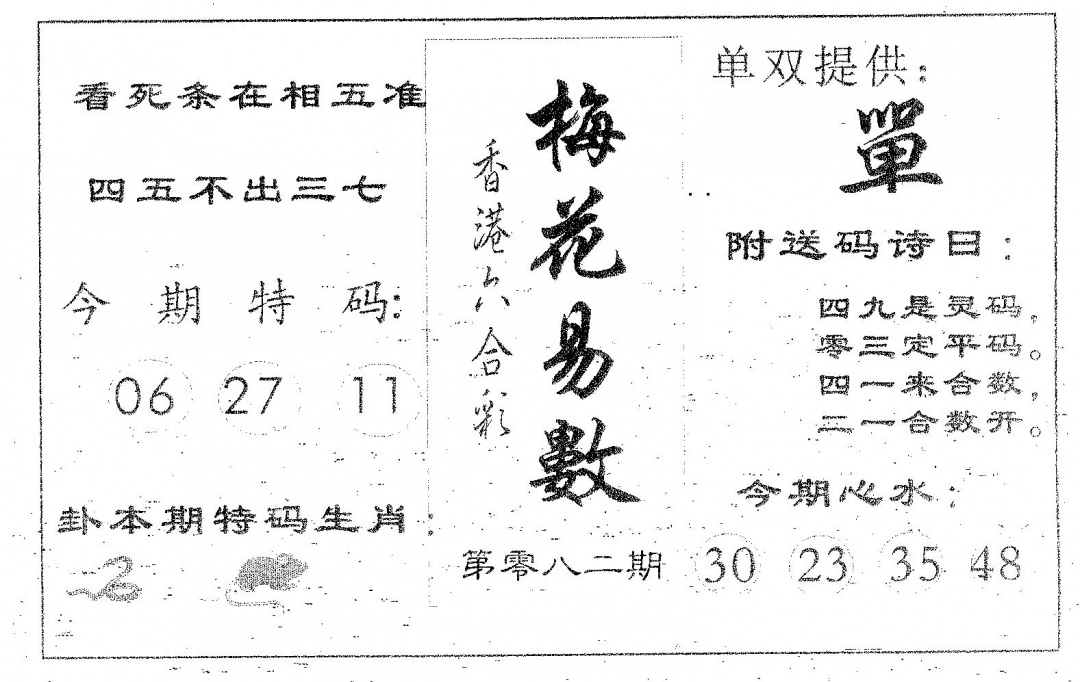 看死条在相五准
四五不出三七
今期特码:
06 27 11
卦本期特码生肖:
梅花易數
香港六合彩
第零八二期
单双提供:
單
附送码诗日:
四九是灵码,
零三定平码。
四一来合数,
二一合数开。
今期心水:
30 23 35 48